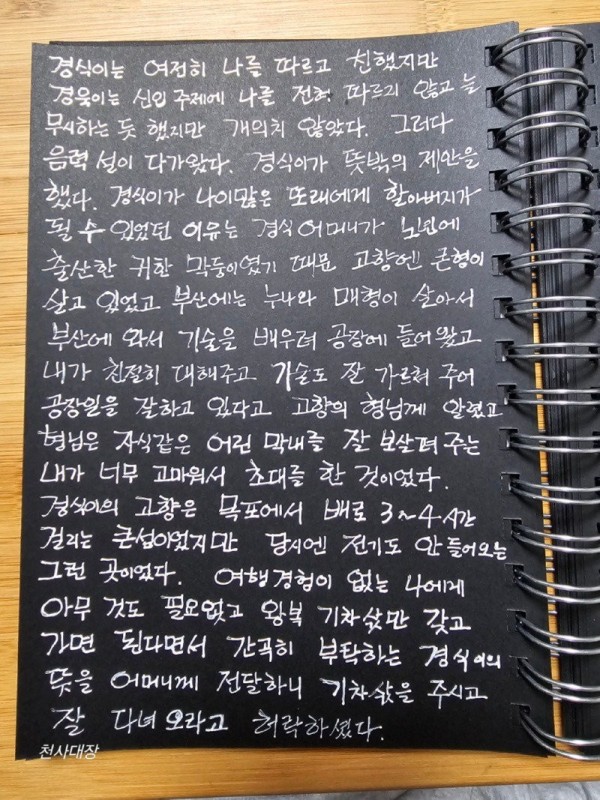 경식이는 여전히 나를 따르고 친했지만
경욱이는 신입 주제에 나를 전혀 따르지 않고 늘
무시하는 듯 했지만 개의치 않았다. 그러다
음력 설이 다가왔다. 경식이가 뜻밖의 제안을
했다. 경식이가 나이많은 또래에게 할아버지가
될 수 있었던 이유는 경식 어머니가 노년에
출산한 귀한 막둥이였기 때문 고향엔 큰형이
살고 있었고 부산에는 누나와 매형이 살아서
부산에 와서 기술을 배우려 공장에 들어왔고
내가 친절히 대해주고 기술도 잘 가르쳐 주어
공장일을 잘하고 있다고 고향의 형님께 알렸고
형님은 자식같은 어린 막내를 잘 보살펴 주는
내가 너무 고마워서 초대를 한 것이었다.
경식이의 고향은 목포에서 배로 3~4시간
걸리는 큰섬이었지만 당시엔 전기도 안 들어오는
그런 곳이었다. 여행경험이 없는 나에게
아무 것도 필요없고 왕복 기차삯만 갖고
가면 된다면서 간곡히 부탁하는 경식이의
뜻을 어머니께 전달하니 기차삯을 주시고
잘 다녀오라고 허락하셨다.
천사대장